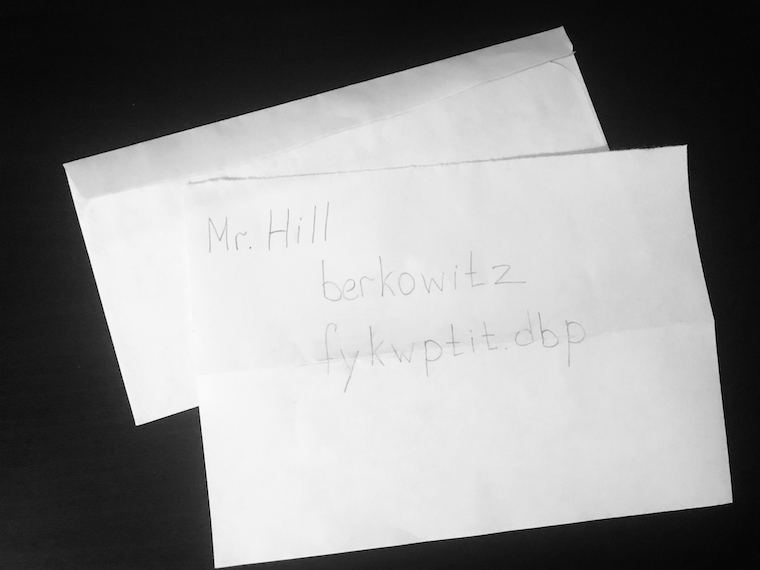 Mr. Hill
berkowitz
fykwptit.dbp